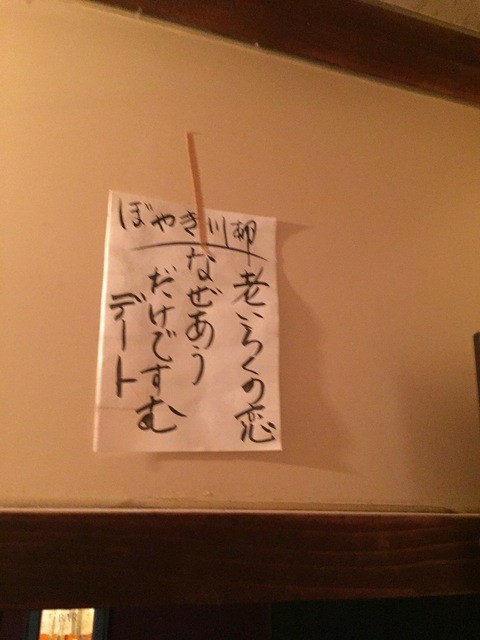 ぼやき川柳
老いらくの恋
なぜあう
だけですむ
デート